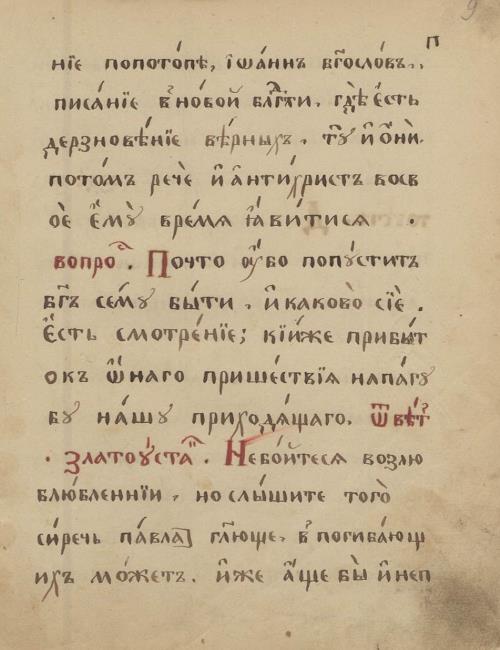 9
П
нїе попото́пѣ, їѡа́ннъ бг҃осло́въ..
писа́нїе в҆но́вой блгⷣти. гдѣ̀ є҆́сть
дерзнове́нїе вѣ́рныхъ. тꙋ̀ и҆ ѻ҆нѝ.
пото́мъ речѐ и҆ а҆нтихрⷭ҇истъ восв
оѐ є҆мꙋ̀ вре́мѧ ꙗ҆ви́тисѧ .
вопроⷭ. Почто ᲂу҆́бо попꙋ́ститъ
бг҃ъ семꙋ̀ бы́ти. и҆ каково̀ сїѐ.
є҆́сть смотре́нїе; кі́йже прибы́т
окъ ѡ҆́наго прише́ствїѧ напа́гꙋ
бꙋ на́шꙋ приходѧ́щаго. Ѿвѣ́т
. златоꙋ́стаⷢ. Небо́йтесѧ возлю
блю́бленнїи, но слы́шите того̀
си́речь па́вла глю҃ще, в҆ погиба́ющ
ихъ мо́жетъ. и҆́же а҆́ще бы̀ и҆ неп